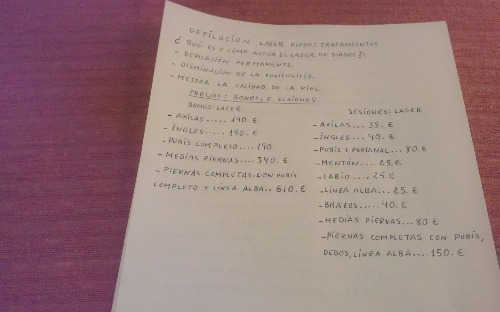 DEPILACION LASER DIODO: TRATAMIENTOS
¿ QUÉ ES Y CÓMO ACTÚA EL LASER DE DIODO?:
- DEPILACIÓN PERMANENTE.
- DISMINUCIÓN DE LA FOLICULITIS.
- MEJORA LA CALIDAD DE LA PIEL.
PRECIOS: BONOS, 6 SESIONES
BONOS: LASER
- AXILAS ..... 190. €
- INGLES ..... 190. €
- PUBIS COMPLETO .... 190
- MEDIAS PIERNAS .... 340. €
- PIERNAS COMPLETAS, CON PUBIS
COMPLETO Y LINEA ALBA.. 610. €
SESIONES: LASER
- AXILAS .... 35. €
- INGLES .... 40. €
- PUBIS + PERIANAL... 80 €
- MENTÓN .... 25. €
- LABIO .... 25. €
- LÍNEA ALBA... 25. €
- BRAZOS ..... 40. €
- MEDIAS PIERNAS ... 80 €
- PIERNAS COMPLETAS CON PUBIS,
DEDOS, LINEA ALBA .... 150. €